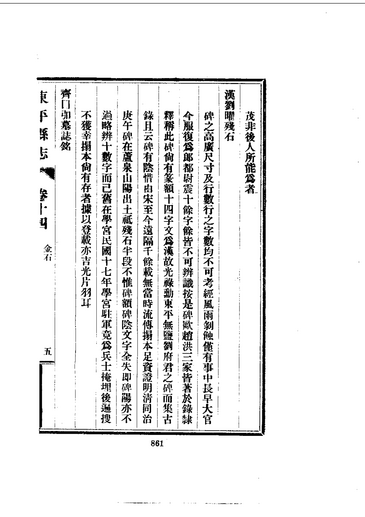 茂非後人所能爲者
漢劉曜殘石
碑之高廣尺寸及行數行之字數均不可考經風雨剝蝕僅有事中長早大官
令服復爲郎都尉震十餘字餘皆不可辨識按是碑歐趙洪三家皆著於錄隸
釋稱此碑尚有篆額十四字文爲漢故光祿勳東平無鹽劉府君之碑而集古
錄且云碑有陰惜由宋至今遠隔千餘載無當時流傳搨本足資證明清同治
庚午碑在蘆泉山陽出土祗殘石半段不惟碑額碑陰文字全失即碑陽亦不
過略辨十數字而已舊在學宮民國十七年學宮駐軍竟爲兵士掩埋後遍搜
不獲幸搨本尚有存者據以登載亦吉光片羽耳
齊□卯墓誌銘
東平縣志
卷十四
金石
五
861